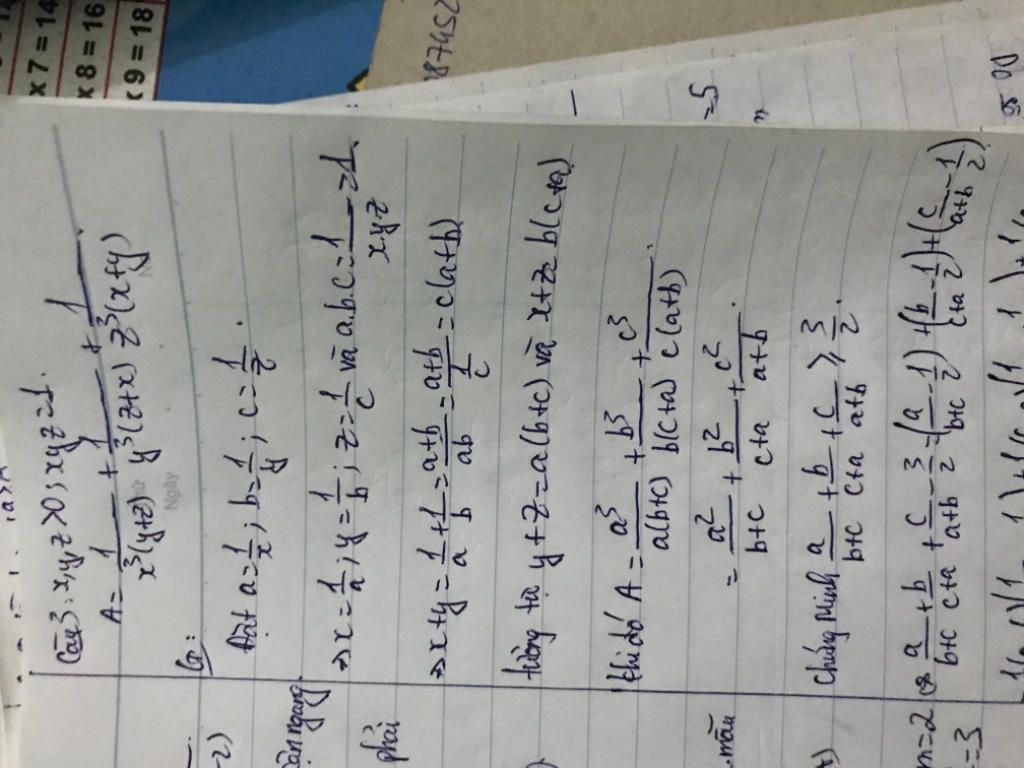 Câu 3: x,y,z >0; xyz=1.
A = 1/x³(y+z) + 1/y³(z+x) + 1/z³(x+y)
Ngày
Đặt a = 1/x; b = 1/y; c = 1/z.
⇒ x = 1/a; y = 1/b; z = 1/c và a.b.c = 1/xyz = 1.
⇒ x+y = 1/a + 1/b = a+b/ab = a+b/1/c = c(a+b)
tương tự y+z = a(b+c) và x+z= b(c+a)
Khi đó A = a³/a(b+c) + b³/b(c+a) + c³/c(a+b).
= a²/b+c + b²/c+a + c²/a+b.
Chứng minh a/b+c + b/c+a + c/a+b ≥ 3/2.
a/b+c + b/c+a + c/a+b - 3/2 = (a/b+c - 1/2) + (b/c+a - 1/2) + (c/a+b - 1/2)
x 7 = 14
x 8 = 16
x 9 = 18
187452
=5
-2)
ngang
phải
mẫu
n=2
=3